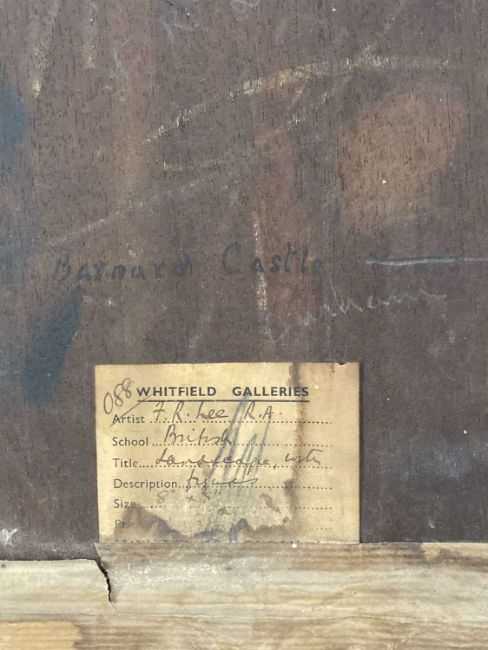 Barnard Castle
Durham
088
WHITFIELD GALLERIES
Artist F. R. Lee R.A.
School British
Title Landscape, with
Description figures
Size